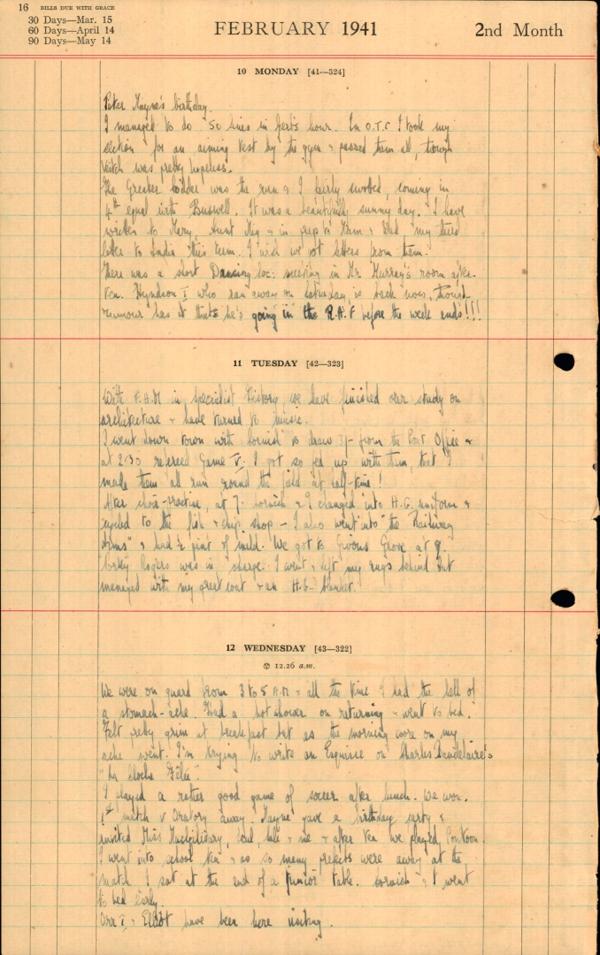 16 BILLS DUE WITH GRACE
30 Days—Mar. 15
60 Days—April 14
90 Days—May 14
FEBRUARY 1941
2nd Month
10 MONDAY [41—324]
Peter Kayne's birthday.
I managed to do 50 lines in hour. In O.T.C I took my
section for an aiming test by the gym & passed them all, though
Veitch was pretty hopeless.
The Greater was the run & I fairly swobed, coming in
4th equal with Buswell. It was a beautifully sunny day. I have
written to Mary, Aunt & in prep to Mum & Dad my third
letter to India this term. I wish we got letters from them.
There was a short Dancing Soc: meeting in Mr. Murray's room after
tea. Hyndson I who ran away on Saturday, is back now, though
rumour has it that he's going in the R.A.F before the week ends!!!
11 TUESDAY [42—323]
With F.H.M in Specialist History, we have finished our study on
architecture & have turned to music.
I went down town with Cornish to draw 3/- from the Post Office &
at 2.30 refereed Game V. I got so fed up with them that I
made them all run round the field at half-time!
After choir-practice, at 7. Cornish & I changed into H.G. uniform &
cycled to the fish & chip shop — I also went into "the Railway
Arms" & had ½ pint of mild. We got to Givons Grove at 9.
Corky Rogers was in charge. I went & left my rugs behind but
managed with my great coat & an H.G. blanket.
12 WEDNESDAY [43—322]
12.26 a.m.
We were on guard from 3 to 5 A.M & all the time I had the hell of
a stomach-ache. Had a hot shower on returning & went to bed.
Felt pretty grim at breakfast but as the morning wore on my
ache went. I'm trying to write an Esquisse on Charles Baudelaire's
"La Cloche Fêlée".
I played a rather good game of soccer after lunch. We won.
1st match v Oratory away. Kayne gave a birthday party &
invited & me & after tea we played Pontoon.
I went into school tea & as so many prefects were away at the
match I sat at the end of a junior table. Cornish & I went
to bed early.
Orr I & have been here visiting.